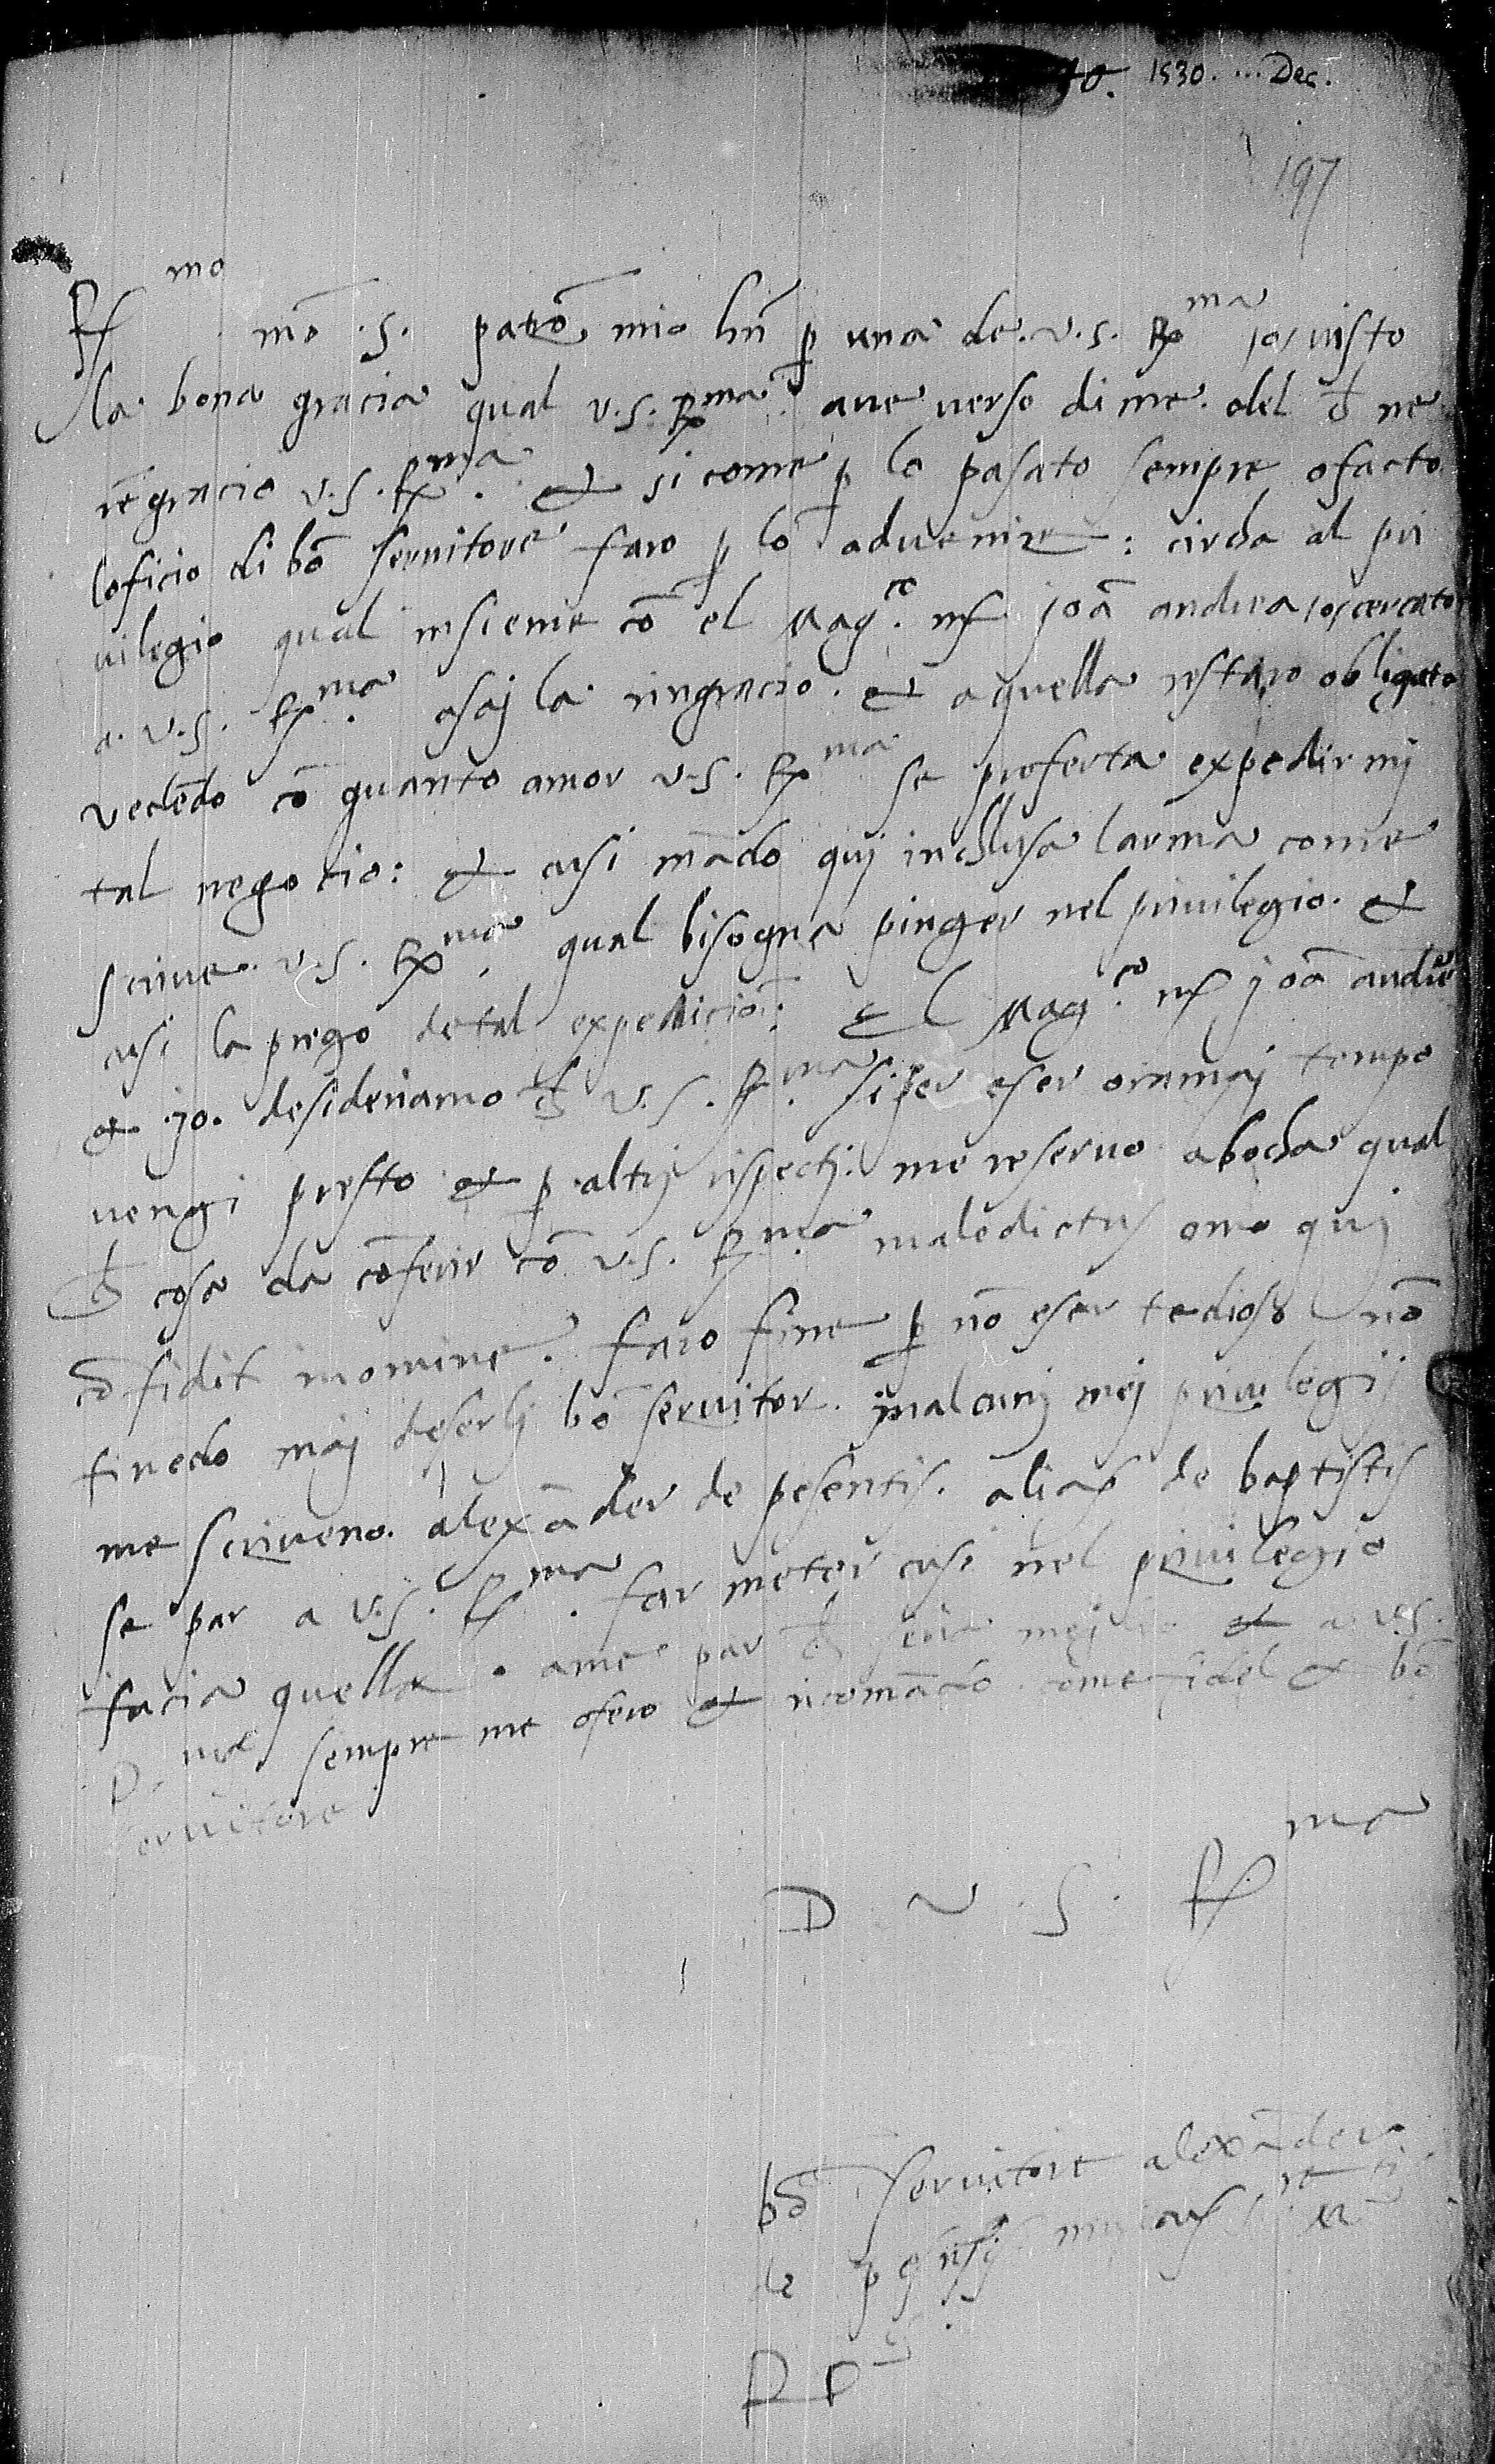 40. 1530. ... Dec.
197
R mo
mō .S. patrō mio hn̄ p una de .v.s. R ma jo visto
la bona gracia qual v.s. R ma ave verso di me. del ch̄ ne
rēgracio v.s. R ma. et si come p lo pasato sempre o facto
loficio di bō servitore faro p lo advenire : circha al pri
vilegio qual insieme cō el Mag.co mß joā andrea jo cercato
a. v.s. R ma. asaj la ringracio. et a quella restaro obligato
vedēdo cō quanto amor v.s. R ma se proferta expedir mj
tal negocio: et cusi mādo quj inclusa larma come
scrive. v.s. R ma. qual bisogna pinger nel privilegio. et
cusi la prego de tal expedicio: El Mag.co mß joā andrea
et jo. desideriamo ch̄ v.s. R ma. si per eser oramaj tempo
vengi presto et p altrj rispectj. me reservo a bocha qual
ch̄ cosa da cōferir cō v.s. R ma maledictus omo quj
cōfidit in omine. Faro fine p nō eser tedioso nō
finēdo maj deserlj bō servitor. in alcunj mej privilegij
me scriveno. alexāder de pesentis. alias de baptistis
se par a v.s. R ma. far meter cusi nel privilegio
facia quella. a me par ch̄ et a v.s.
R. ma sempre me ofero et ricomādo come fidel et bō
servitore
D V. S. R ma
bō servitore alexāder
de